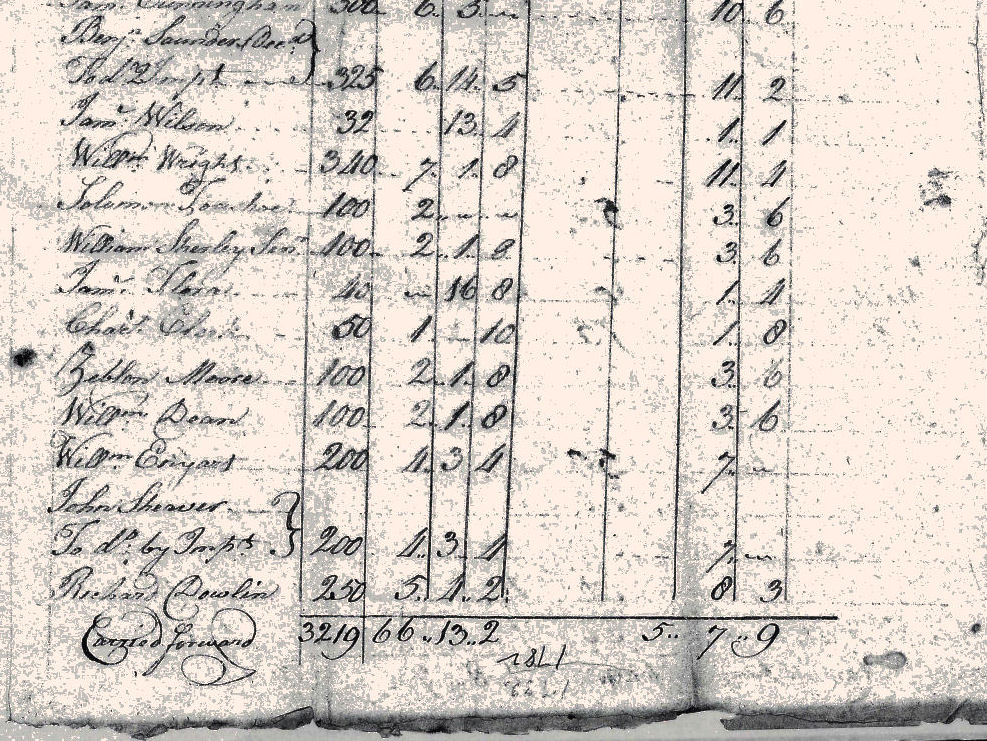 Sam. Cunningham 300 6 5 " 10 6
Benjn. Saunders Decd. }
To do. Impt 325 6 14 5 11 2
Jams. Wilson 32 13 4 1 1
Willm. Wright 340 7 1 8 11 4
Solomon 100 2 " " 3 6
William Shurley Senr. 100 2 1 8 3 6
Jams. 40 " 16 8 1 4
Chars. 50 1 10 1 8
Zeblon Moore 100 2 1 8 3 6
Willm. Doan 100 2 1 8 3 6
Willm. Enyars 200 4 3 4 7 "
John Sherwer }
To do. by Impts } 200 4 3 4 7 "
Richard Dowlin 250 5 4 2 8 3
Carried forward 3219 66 .. 13 .. 2 5 .. 7 .. 9